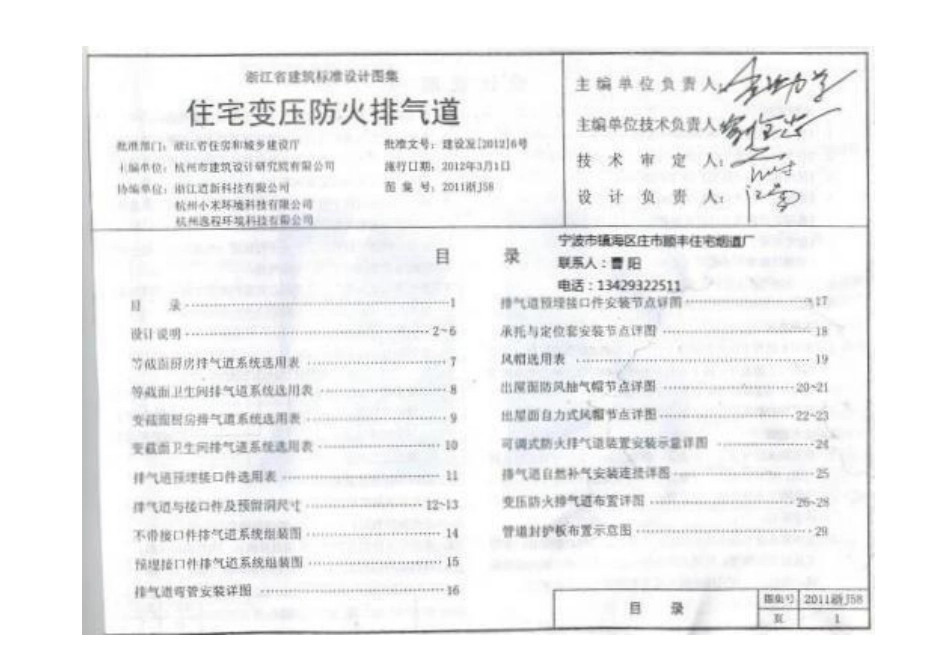 浙江省建筑标准设计图集
住宅变压防火排气道
批准部门：浙江省住房和城乡建设厅
批准文号：建设发[2012]6号
主编单位：杭州市建筑设计研究院有限公司
施行日期：2012年3月1日
协编单位：浙江造新科技有限公司
图集号：2011浙J58
杭州小米环境科技有限公司
杭州逸程环境科技有限公司
主编单位负责人：
主编单位技术负责人：
技术审定人：
设计负责人：
目 录
宁波市镇海区庄市顺丰住宅烟道厂
联系人：曹阳
电话：13429322511
目 录 1
设计说明 2~6
等截面厨房排气道系统选用表 7
等截面卫生间排气道系统选用表 8
变截面厨房排气道系统选用表 9
变截面卫生间排气道系统选用表 10
排气道预埋接口件选用表 11
排气道与接口件及预留洞尺寸 12~13
不带接口件排气道系统组装图 14
预埋接口件排气道系统组装图 15
排气道弯管安装详图 16
排气道预埋接口件安装节点详图 17
承托与定位套安装节点详图 18
风帽选用表 19
出屋面防风抽气帽节点详图 20~21
出屋面自力式风帽节点详图 22~23
可调式防火排气道装置安装示意详图 24
排气道自然补气安装连接详图 25
变压防火排气道布置详图 26~28
管道封护板布置示意图 29
目 录
图集号 2011浙J58
页 1